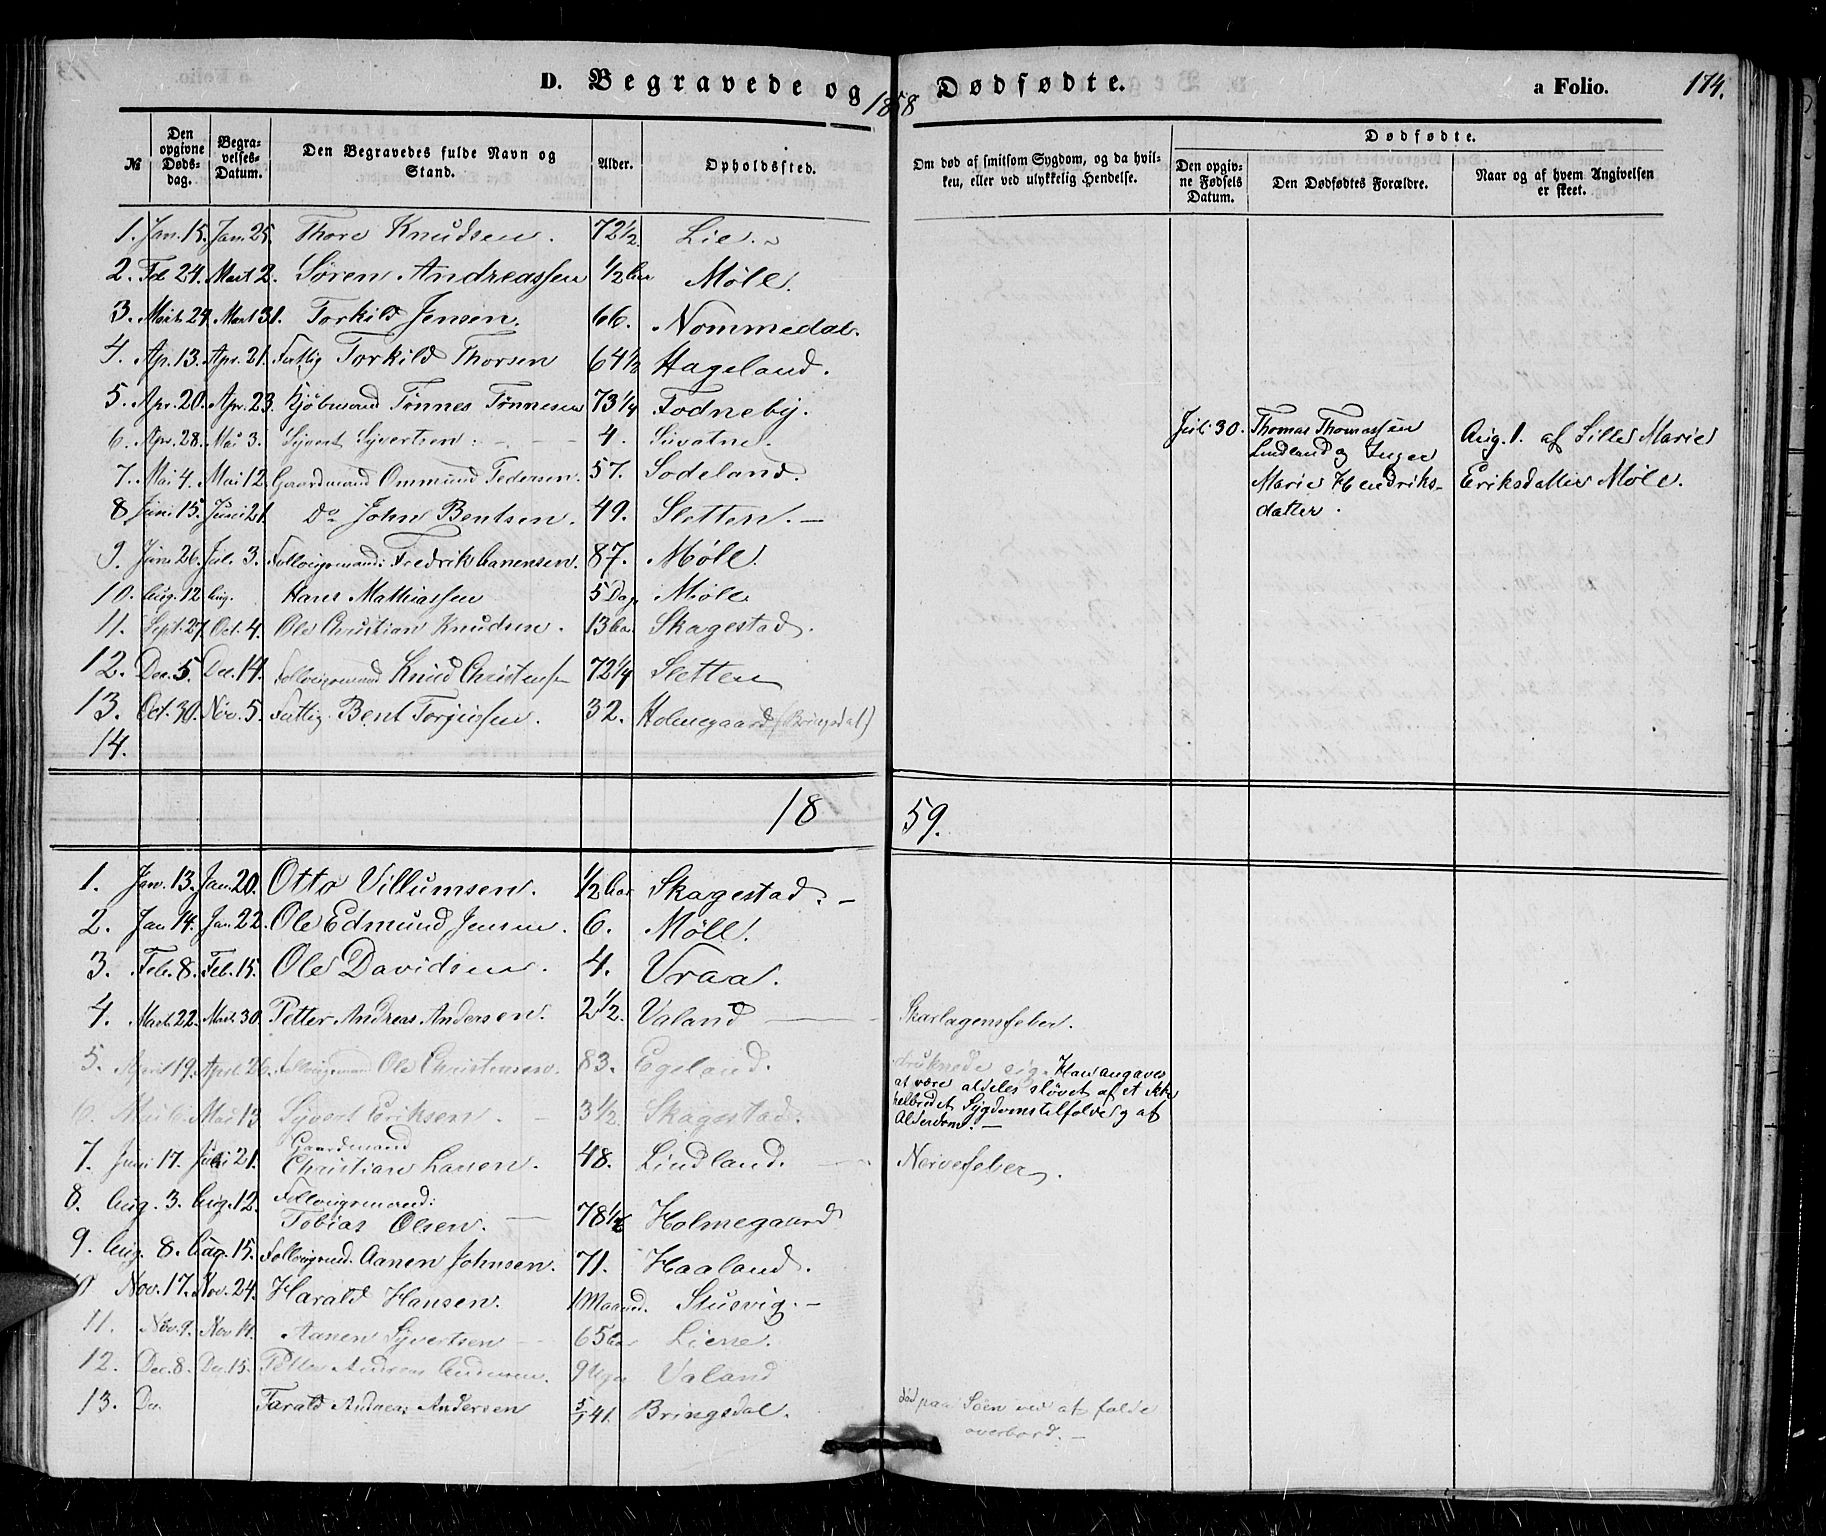 D. Begravede og Dødfødte. a Folio. 174.
1858
№ Den opgivne Døds-dag. Begra-velses-Datum. Den Begravedes fulde Navn og Stand. Alder. Opholdssted. Om død af smitsom Sygdom, og da hvil-ken, eller ved ulykkelig Hendelse. Dødfødte. Den opgiv-ne Fødsels Datum. Den Dødfødtes Forældre. Naar og af hvem Angivelsen er skeet.
1. Jan. 15. Jan. 25. Thore Knudsen. 72 1/2 Lie.
2. Feb 24. Mart 2. Søren Andreassen 1/2 Aar Møll.
3. Marts 24. Mart 31. Torkild Jensen. 66. Nommedal.
4. Ap. 13. Apr. 21. Fattig Torkild Thorsen 64 1/2 Hageland.
5. Apr. 20. Apr. 23. Kjøbmand Tønnes Tønnesen 73 1/4 Fodneby.
6. Apr. 28. Mai 3. Syvert Syvertsen. 4. Suvatne.
7. Mai 4. Mai 12. Gaardmand Ommund Pedersen. 57. Sodeland.
8. Juni 15. Juni 21. Do John Bentsen. 49. Sletten.
9. Juni 26. Jul. 3. Follougsmand: Fredrik Aanensen. 87. Møll.
10. Aug. 12 Aug. Hans Mathiassen 5 Dage Møll
11. Sept. 27. Oct. 4. Ole Christian Knudsen. 13 Aar. Skagestad.
12. Dec. 5. Dec. 14. Follougsmand Knud Christens 72 1/4 Sletten
13. Oct. 30. Nov. 5. Fattig. Bent Torjussen. 32. Holmegaard (Bringsdal)
14.
Jul. 30. Thomas Thomassen Aug. 1. af Sille Marie
Lindland og Inger
Marie Hendriks- Eriksdatter Møll.
datter.
1859.
1. Jan. 13. Jan. 20. Otto Villumsen. 1/2 Aar Skagestad.
2. Jan 14. Jan. 22. Ole Edmund Jensen. 6. Møll.
3. Feb. 8. Feb. 15. Ole Davidsen. 4. Vraa.
4. Mart. 22. Mart. 30. Petter Andreas Andersen. 2 1/2. Valand Skarlagensfeber.
5. April 19. April 26. Follougsmand Ole Christensen. 83. Egeland. druknede sig. Han angaves
at være aldeles sløvet af et ikke
helbredet Sygdomstilfælde og af
Alderdom.
6. Mai 6. Mai 13 Syvert Eriksen 3 1/2. Skagestad.
7. Juni 17. Juni 21. Gaardmand
Christian Larsen. 48. Lindland. Nervefeber.
8. Aug. 3. Aug. 12. Follougsmand:
Tobias Olsen. 78 1/2 Holmegaard
9. Aug. 8. Aug. 15. Follougsmd. Aanen Johnsen. 71. Haaland.
10 Nov. 17. Nov. 24. Harald Hansen. 1 Maaned. Stusvig.
11. Nov. 9. Nov 14. Aanen Syvertsen 65 Aar Liene.
12. Dec. 8. Dec. 15. Petter Andreas Andersen. 9 Uger Valand
13. Dec. Tarald Andreas Andersen 41. Bringsdal. død paa Søen ved at falde
overbord.